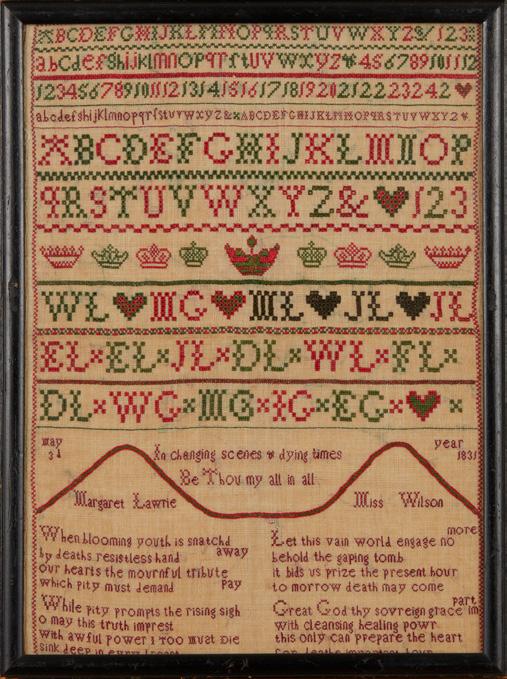 ABCDEFGHIJKLMNOPQRSTUVWXYZ& 123
abcdefghijklmnopqrstuvwxyz 456789101112
123456789101112131415161718192021222324 2
abcdefghijklmnopqrstuvwxyz&ABCDEFGHIJKLMNOPQRSTUVWXYZ
ABCDEFGHIJKLMNOP
QRSTUVWXYZ& 123
WL MG ML JL JL
EL×EL×JL×DL×WL×FL×
DL×WG×MG×IG×EG× ×
may
3d
year
1831
In changing scenes & dying times
Be Thou my all in all
Margaret Lawrie
Miss Wilson
When blooming youth is snatchd
by deaths resistless hand away
our hearts the mournful tribute
which pity must demand pay
While pity prompts the rising sigh
o may this truth imprest
with awful power I too must die
sink deep in every breast
Let this vain world engage no more
behold the gaping tomb
it bids us prize the present hour
to morrow death may come
Great God thy sovreign grace im part
with cleansing healing powr
this only can prepare the heart
for deaths important hour